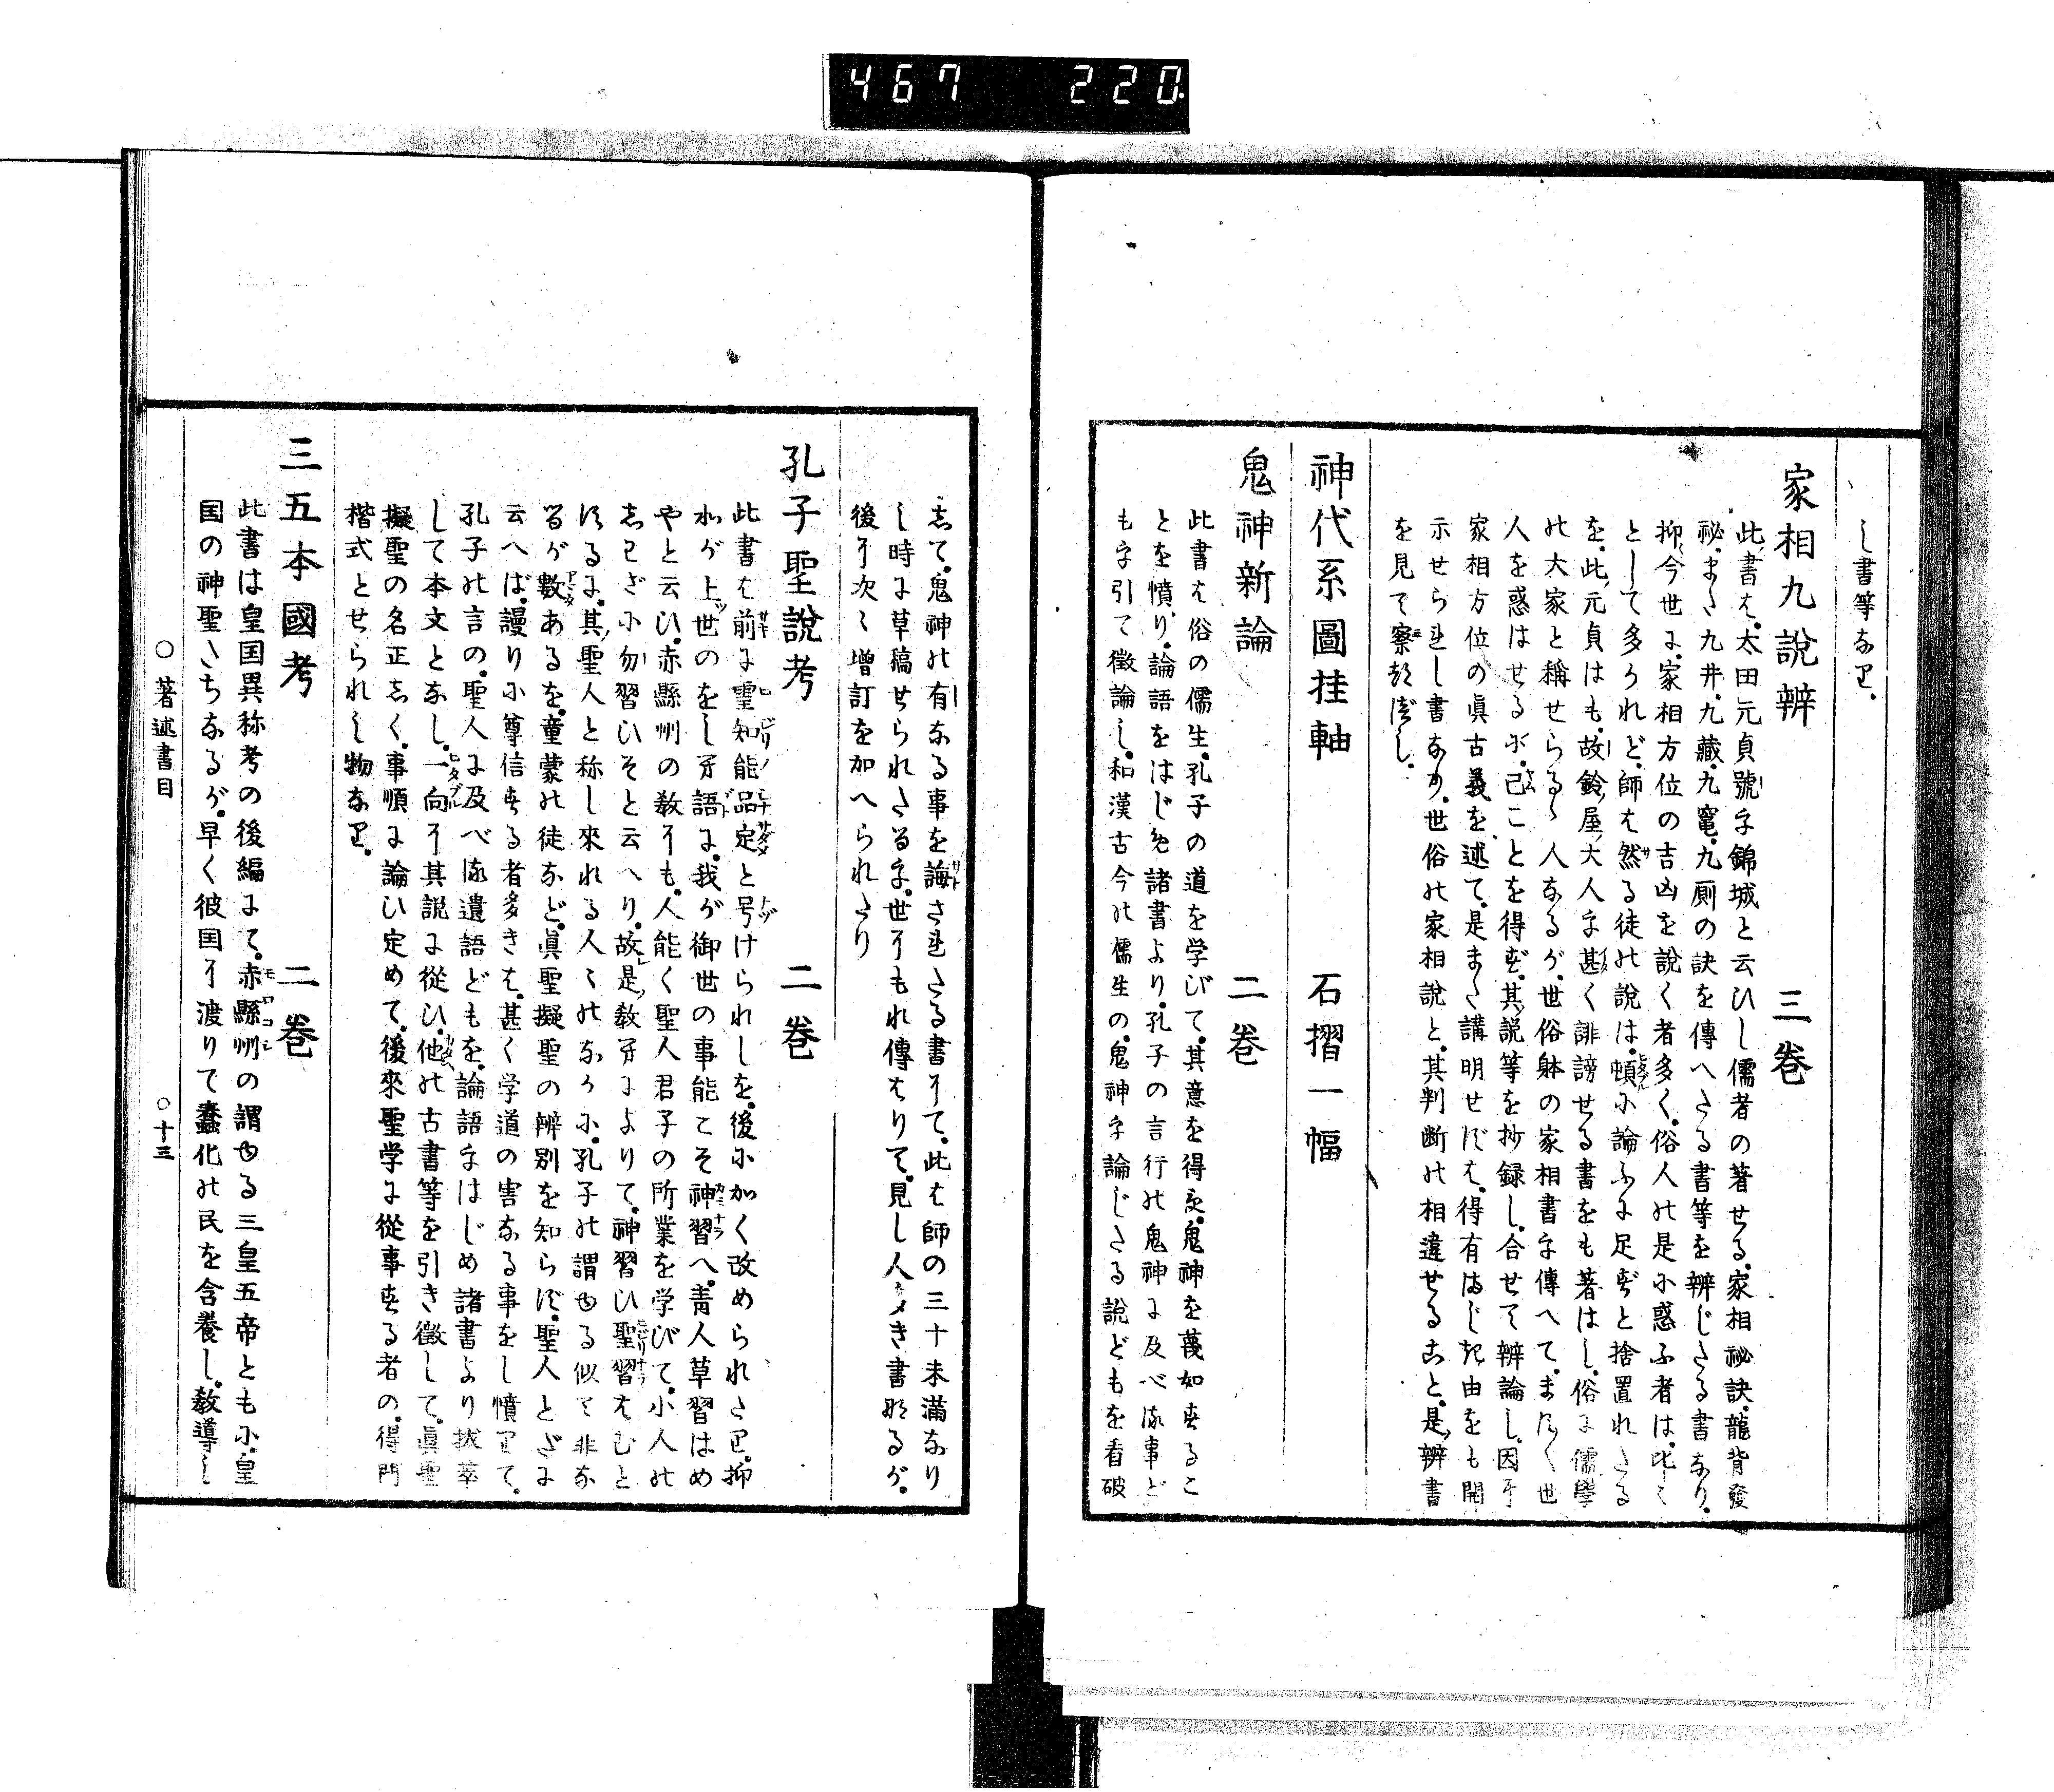 467 220
し書等なり。
家相九説辨 三巻
此書は、太田元貞號を錦城と云ひし儒者の著せる、家相祕訣、龍背發
祕、また九井、九藏、九竈、九厠の訣を傳へたる書等を辨じたる書なり。
抑〻今世に、家相方位の吉凶を説く者多く、俗人の是に惑ふ者は、此〻
として多かれど、師は然る徒の説は、頓に論ふに足ずと捨置れたる
を、此元貞はも、故鈴屋大人を甚く誹謗せる書をも著はし、俗に儒學
の大家と稱せらるゝ人なるが、世俗躰の家相書を傳へて、またく世
人を惑はせるが、己ことを得ず、其説等を抄録し、合せて辨論し、因に
家相方位の眞古義を述て、是また講明せずは、得有まじき由をも開
示せられし書なり、世俗の家相説と、其判断の相違せること、是辨書
を見て察るべし。
神代系圖挂軸 石摺一幅
鬼神新論 二巻
此書は俗の儒生、孔子の道を学びて、其意を得ず、鬼神を蔑如するこ
とを憤り、論語をはじめ諸書より、孔子の言行の鬼神に及べる事ど
もを引て徴論し、和漢古今の儒生の、鬼神を論じたる説どもを看破
して、鬼神の有なる事を誨されたる書にて、此は師の三十未滿なり
し時に草稿せられたるを、世にもれ傳はりて、見し人多き書なるが、
後に次〻増訂を加へられたり
孔子聖説考 二巻
此書は前に霊知能品定と号けられしを、後に如く改められたり、抑
わが上世のをしへ語に、我が御世の事能こそ神習へ、青人草習はめ
やと云ひ、赤縣州の教にも、人能く聖人君子の所業を学びて、小人の
しわざに勿習ひそと云へり、故是教によりて、神習ひ聖習はむと
するに、其聖人と称し來れる人〻のなかに、孔子の謂ゆる似て非な
るが數あるを、童蒙の徒など、眞聖擬聖の辨別を知らず、聖人とだに
云へば、謾りに尊信する者多きは、甚く学道の害なる事をし憤りて、
孔子の言の、聖人に及べる遺語どもを、論語をはじめ諸書より拔萃
して本文となし、一向に其説に從ひ、他の古書等を引き徴して、眞聖
擬聖の名正しく、事順に論ひ定めて、後來聖学に從事する者の、得門
楷式とせられし物なり。
三五本國考 二巻
此書は皇国異称考の後編にて、赤縣州の謂ゆる三皇五帝ともに、皇
国の神聖たちなるが、早く彼国に渡りて蠢化の民を含養し、教導し
○著述書目 ○十三